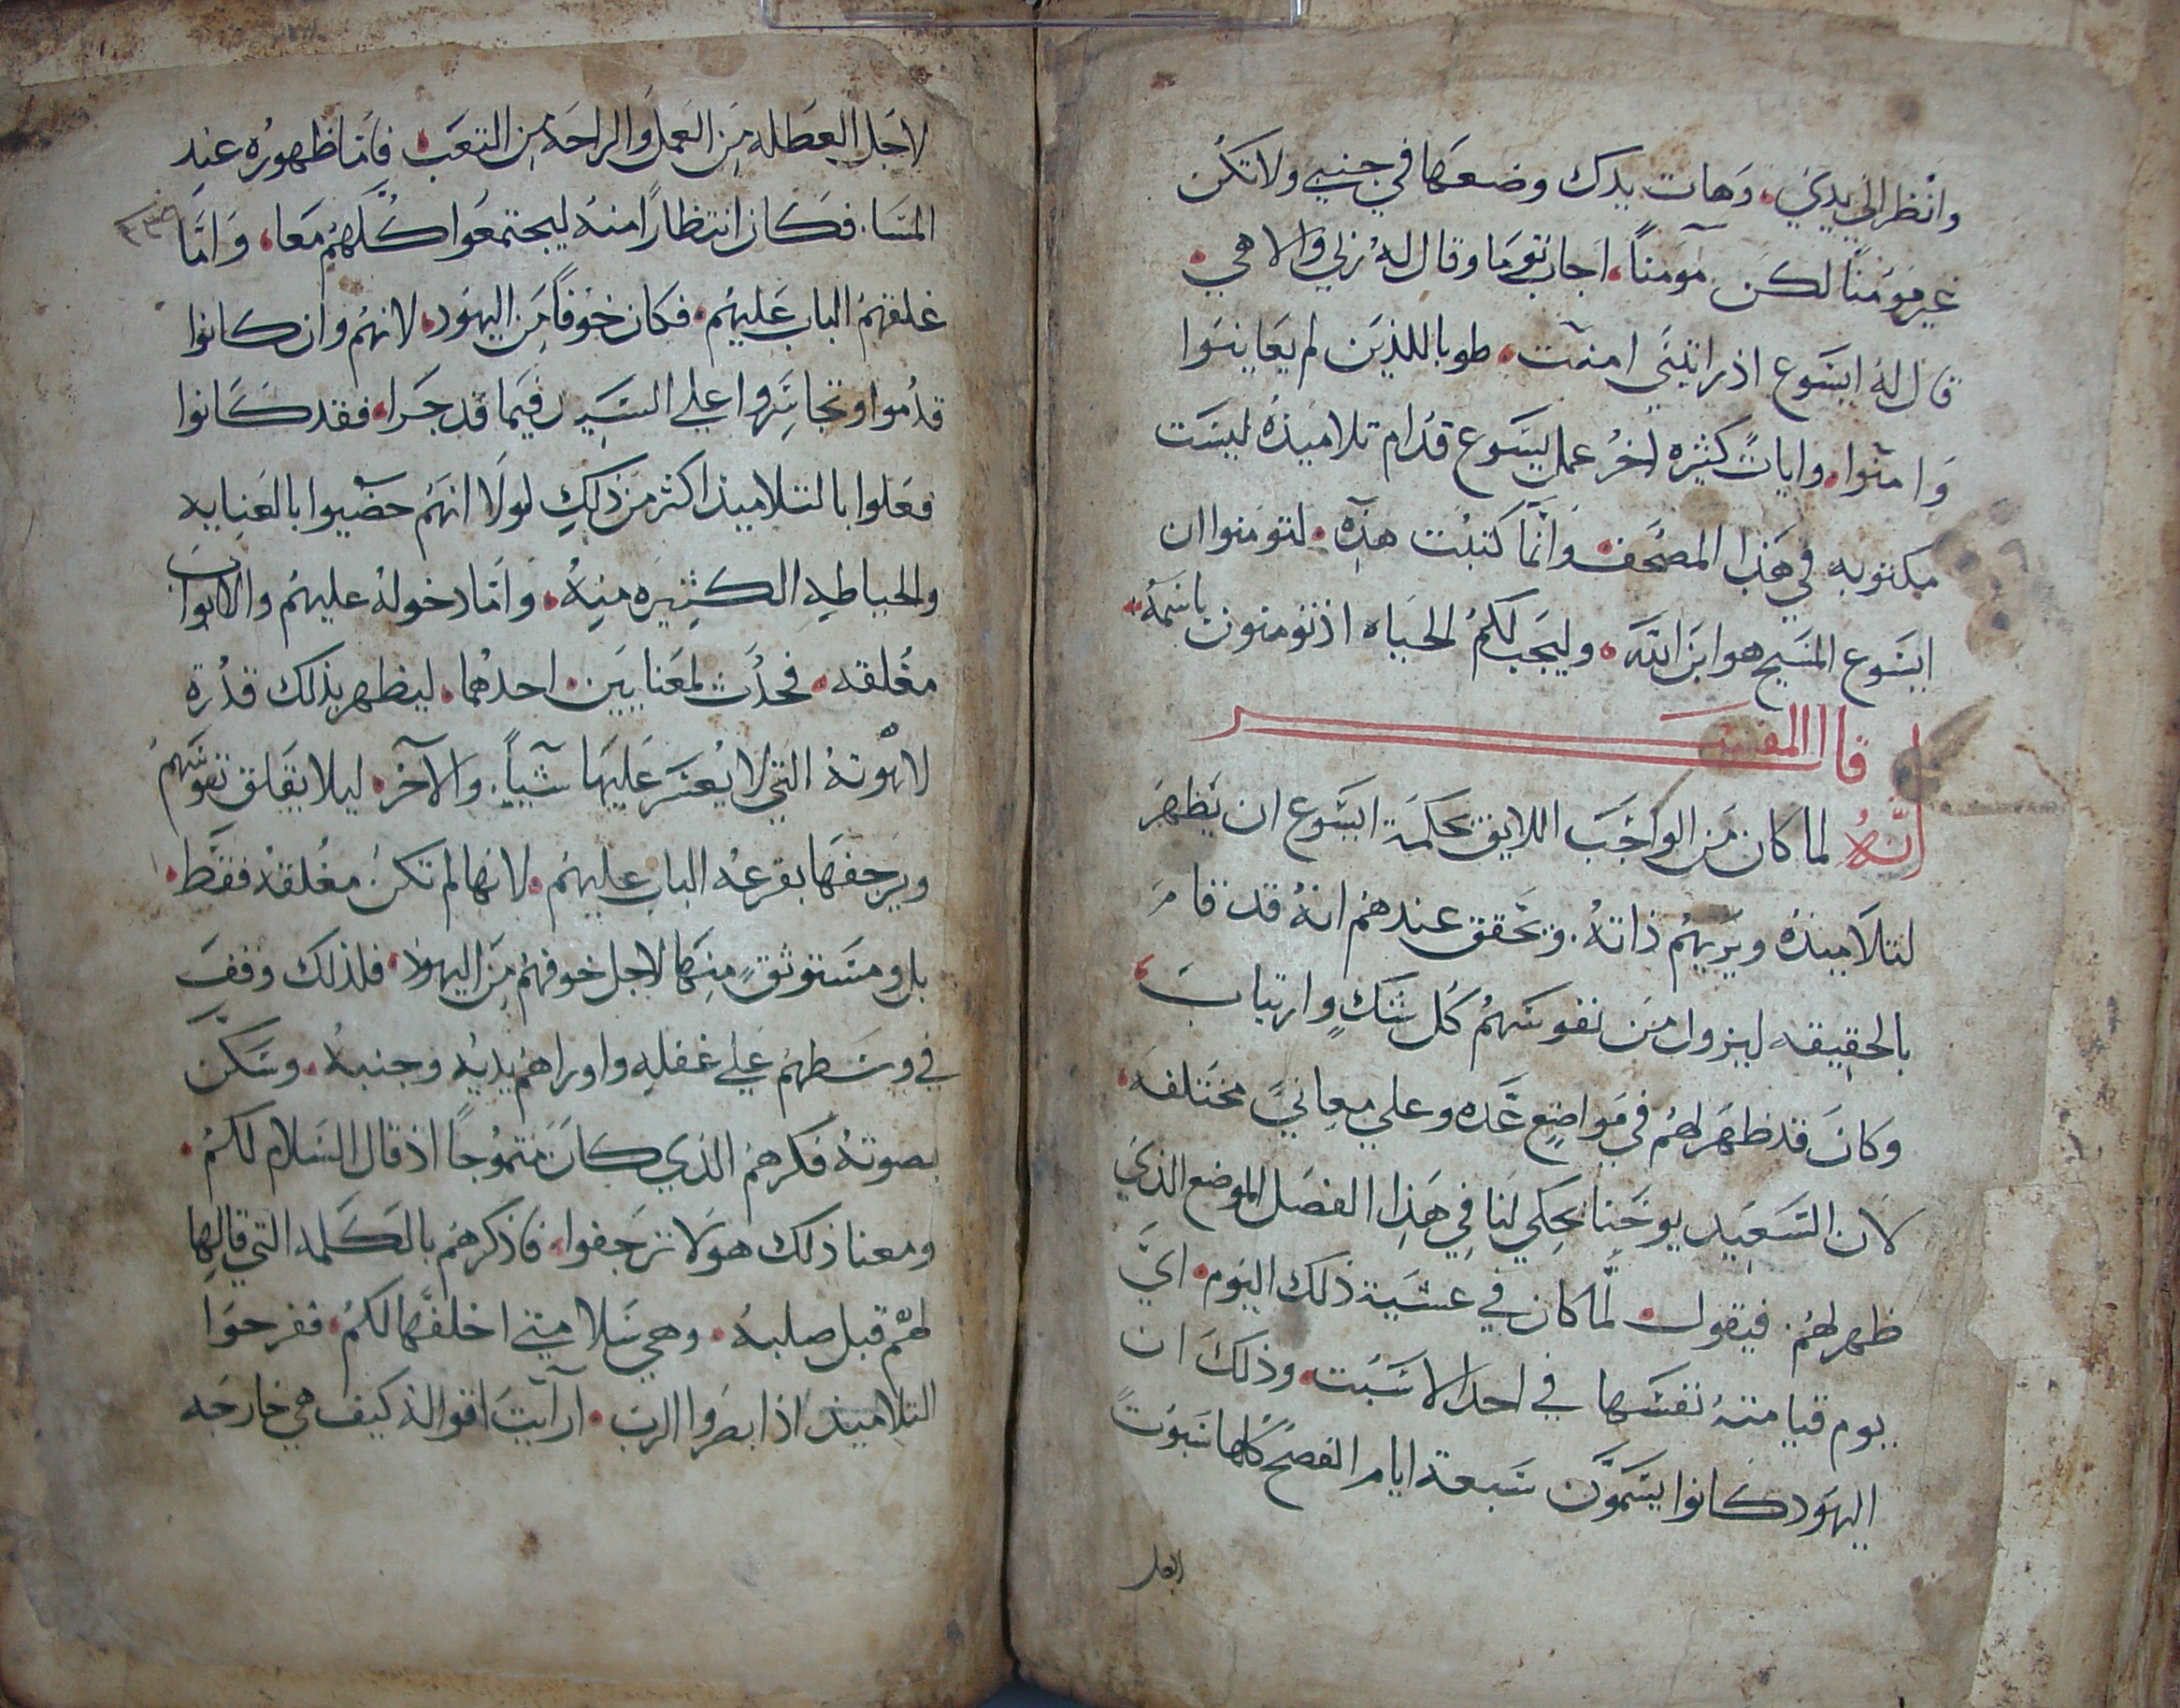 وانظر الي يدي، وهات يدك وضعها في جنبي ولا تكن
غير مومنًا لكن مومنًا، اجاب توما وقال له ربي والاهي
قال له ايسوع اذ رايتني امنت، طوبا للذين لم يعاينوا
وامنوا، وايات كثيره اخر عمل يسوع قدام تلاميذه ليست
مكتوبه في هذا المصحف، وانما كتبت هذه، لتومنوا ان
ايسوع المسيح هو ابن الله، وليجب لكم الحياه اذ تومنون باسمه
قال المفسر
انه لما كان من الواجب اللايق بحكمة ايسوع ان يظهر
لتلاميذه ويريهم ذاته. وتحقق عندهم انه قد قام
بالحقيقه ليزول من نفوسهم كل شك وارتياب
وكان قد ظهر لهم في مواضع عده وعلي معاني مختلفه
لان السعيد يوحنا يحكي لنا في هذا الفصل الموضع الذي
ظهر لهم. فيقول، لما كان في عشية ذلك اليوم، اي
يوم قيامته نفسها في احد الاسبت، وذلك ان
اليهود كانوا يسمون سبعة ايام الفصح كلها سبوت
لاجل العطله من العمل والراحه من التعب، فاما ظهوره عند
المسا. فكان انتظارًا منه ليجتمعوا كلهم معا، واما
غلقهم الباب عليهم، فكان خوفًا من اليهود، لانهم وان كانوا
قدموا وتجاسروا علي السيد فيما قد جرا، فقد كانوا
فعلوا بالتلاميذ اكثر من ذلك لولا انهم حضيوا بالعنايه
والحياطه الكثيره منه، واما دخوله عليهم والابواب
مغلقه، فحدث لمعنايين، احدهما، ليظهر بذلك قدرة
لاهوته التي لا يعسر عليها شيًا. والآخر، ليلا يقلق نفوسهم
ويرجفها بقرعه الباب عليهم، لانها لم تكن مغلقه فقط،
بل ومستوثق منها لاجل خوفهم من اليهود، فلذلك وقف
في وسطهم علي غفله واوراهم يديه وجنبه، وسكن
بصوته فكرهم الذي كان متموجًا اذ قال السلام لكم،
ومعنا ذلك هو لا ترجفوا، فاذكرهم بالكلمه التي قالها
لهم قبل صلبه، وهي سلامتي اخلفها لكم، ففرحوا
التلاميذ اذ ابصروا الرب، ارايت اقواله كيف هي خارجه